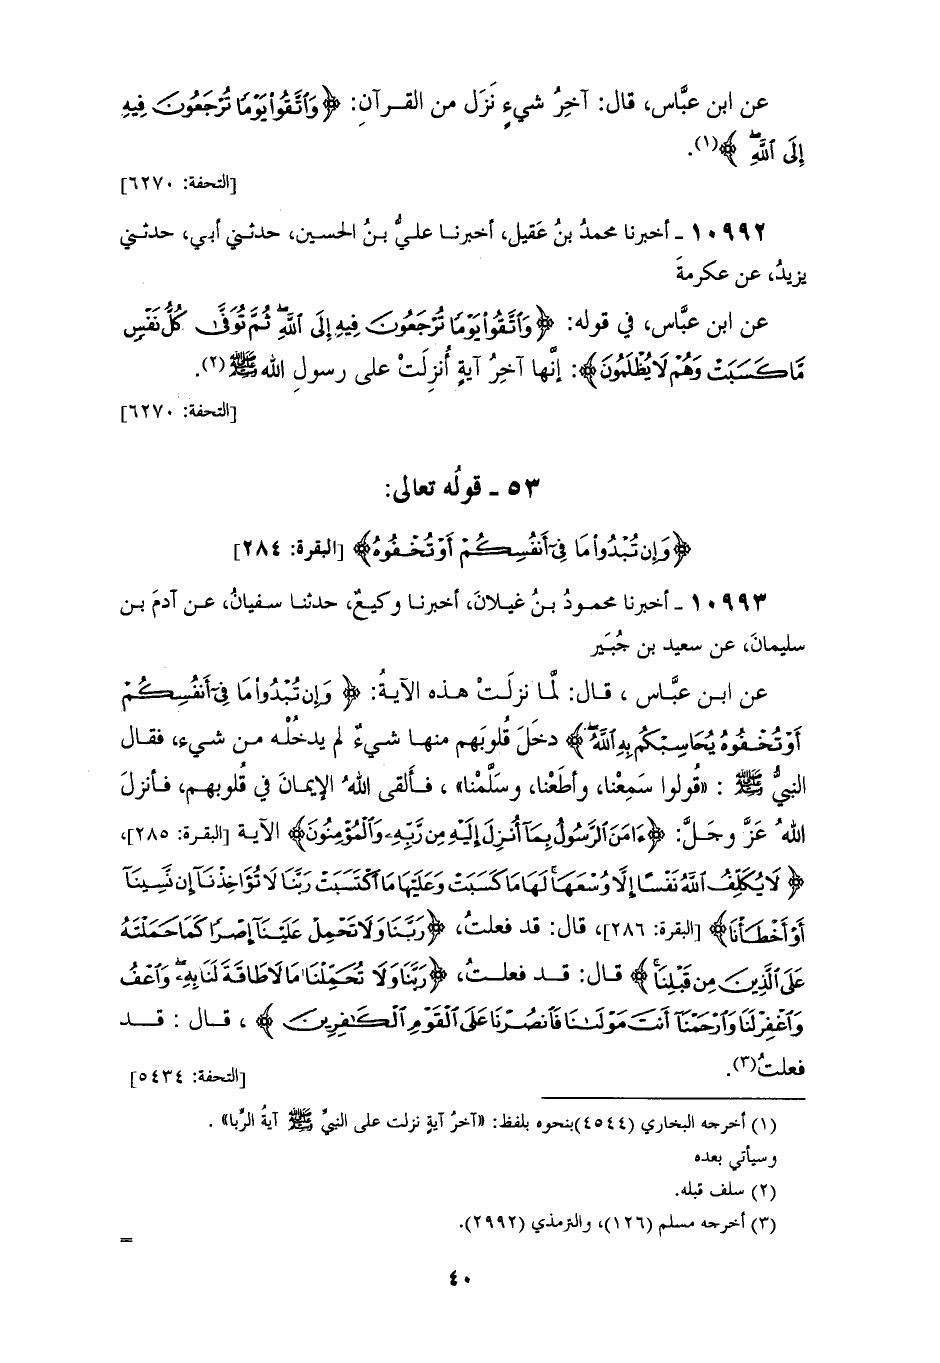 عن ابن عبَّاس، قال: آخِرُ شيءٍ نَزَل من القرآنِ: ﴿وَاتَّقُوا يَوْمًا تُرْجَعُونَ فِيهِ
إِلَى اللَّهِ﴾(١).
[التحفة: ٦٢٧٠]
١٠٩٩٢ ـ أخبرنا محمدُ بنُ عَقيل، أخبرنا عليُّ بنُ الحسين، حدثني أبي، حدثني
يزيدُ، عن عكرمةَ
عن ابن عبَّاس، في قوله: ﴿وَاتَّقُوا يَوْمًا تُرْجَعُونَ فِيهِ إِلَى اللَّهِ ثُمَّ تُوَفَّى كُلُّ نَفْسٍ
مَّا كَسَبَتْ وَهُمْ لَا يُظْلَمُونَ﴾: إنَّها آخِرُ آيةٍ أُنزِلَتْ على رسولِ الله ﷺ(٢).
[التحفة: ٦٢٧٠]
٥٣ ـ قولُه تعالى:
﴿وَإِن تُبْدُوا مَا فِي أَنفُسِكُمْ أَوْ تُخْفُوهُ﴾ [البقرة: ٢٨٤]
١٠٩٩٣ ـ أخبرنا محمودُ بنُ غيلانَ، أخبرنا وكيعٌ، حدثنا سفيانُ، عن آدمَ بن
سليمانَ، عن سعيد بن جُبَير
عن ابن عبَّاس ، قال: لمَّا نزلَتْ هذه الآيةُ: ﴿وَإِن تُبْدُوا مَا فِي أَنفُسِكُمْ
أَوْ تُخْفُوهُ يُحَاسِبْكُم بِهِ اللَّهُ﴾ دخلَ قُلوبَهم منها شيءٌ لم يدخُلْه من شيء، فقال
النبيُّ ﷺ : «قُولوا سَمِعْنا، وأطَعْنا، وسَلَّمْنا» ، فألقى اللهُ الإيمانَ في قُلوبهم، فأنزلَ
اللهُ عَزَّ وجَلَّ: ﴿ءَامَنَ الرَّسُولُ بِمَا أُنزِلَ إِلَيْهِ مِن رَّبِّهِ وَالْمُؤْمِنُونَ﴾ الآية [البقرة: ٢٨٥]،
﴿لَا يُكَلِّفُ اللَّهُ نَفْسًا إِلَّا وُسْعَهَا لَهَا مَا كَسَبَتْ وَعَلَيْهَا مَا اكْتَسَبَتْ رَبَّنَا لَا تُؤَاخِذْنَا إِن نَّسِينَا
أَوْ أَخْطَأْنَا﴾ [البقرة: ٢٨٦]، قال: قد فعلتُ، ﴿رَبَّنَا وَلَا تَحْمِلْ عَلَيْنَا إِصْرًا كَمَا حَمَلْتَهُ
عَلَى الَّذِينَ مِن قَبْلِنَا﴾ قال: قد فعلتُ، ﴿رَبَّنَا وَلَا تُحَمِّلْنَا مَا لَا طَاقَةَ لَنَا بِهِ وَاعْفُ
وَاغْفِرْ لَنَا وَارْحَمْنَا أَنتَ مَوْلَانَا فَانصُرْنَا عَلَى الْقَوْمِ الْكَافِرِينَ﴾ ، قال : قد
فعلتُ(٣).
[التحفة: ٥٤٣٤]
(١) أخرجه البخاري (٤٥٤٤)بنحوه بلفظ: «آخرُ آيةٍ نزلت على النبيِّ ﷺ آيةُ الرِّبا» .
وسيأتي بعده
(٢) سلف قبله.
(٣) أخرجه مسلم (١٢٦)، والترمذي (٢٩٩٢).
=
٤٠